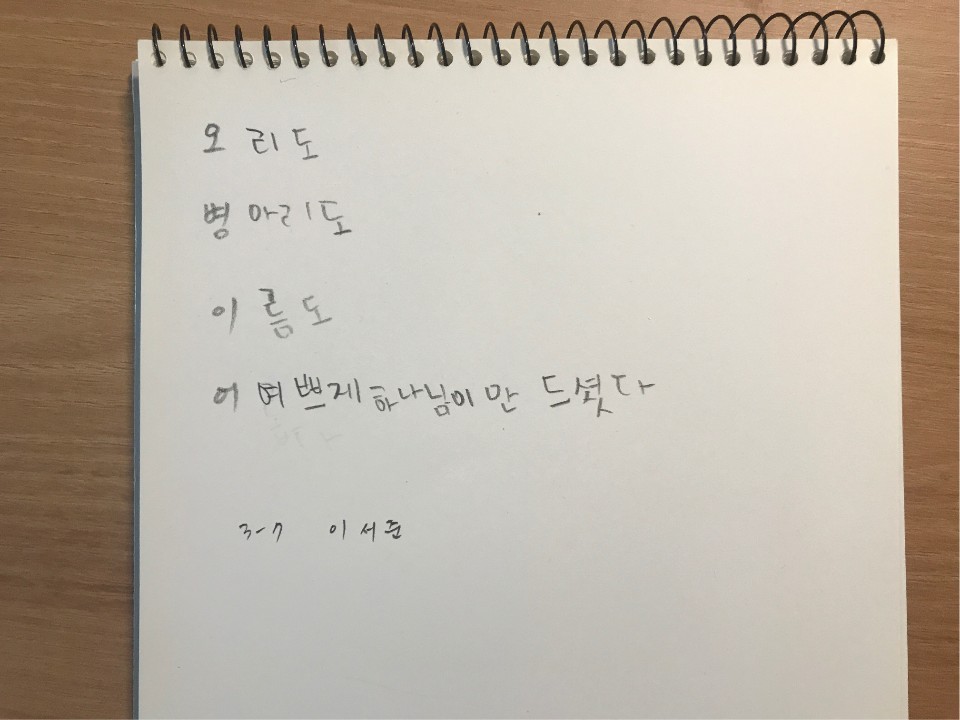 오리도
병아리도
이름도
어여쁘제 하나님이 만드셨다
3-7 이서준